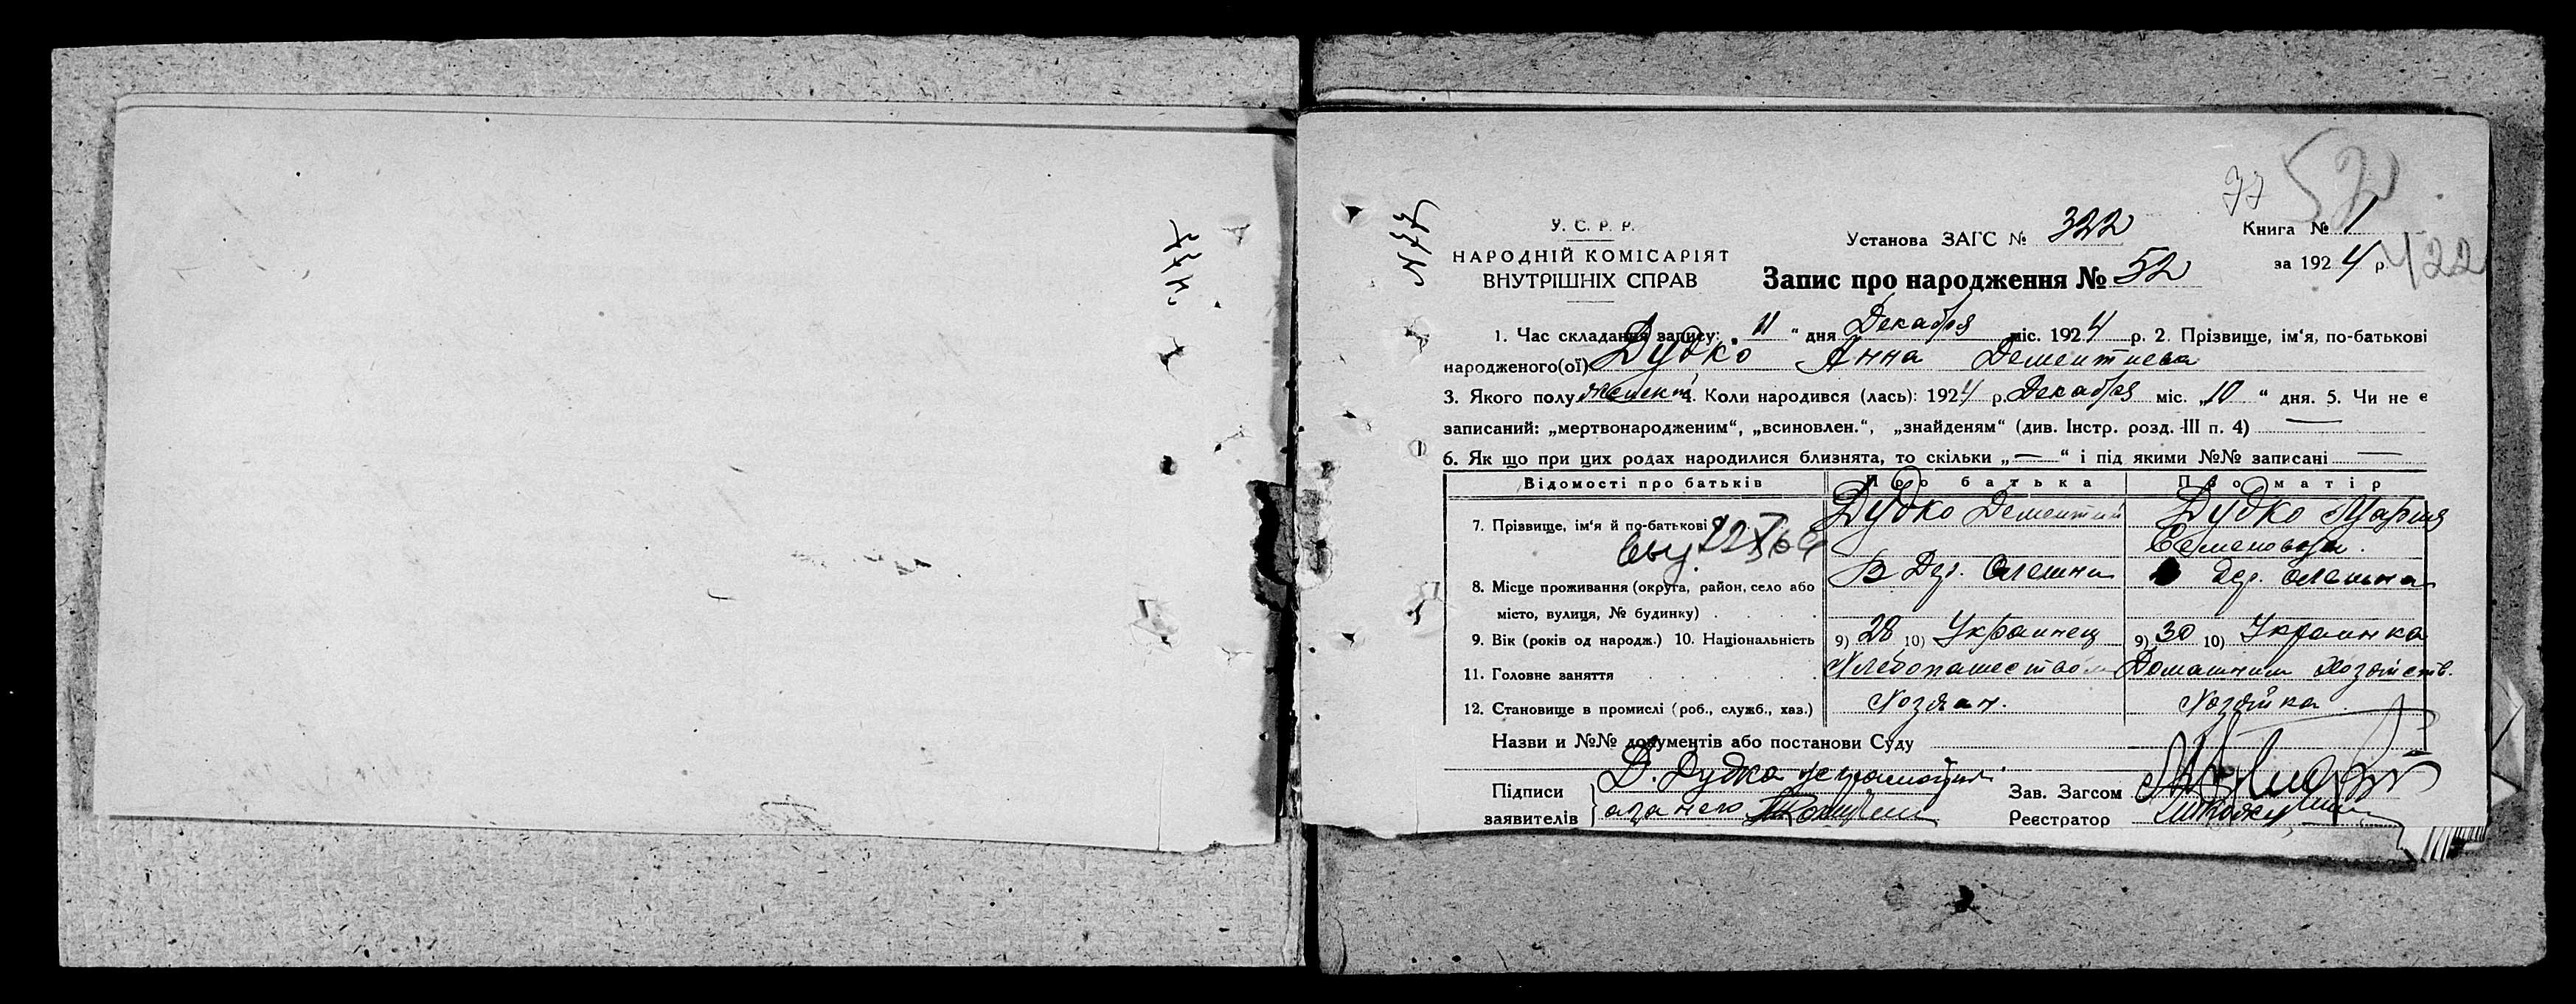 77
52
№77
У. С. Р. Р.
НАРОДНІЙ КОМІСАРІЯТ
ВНУТРІШНІХ СПРАВ
Установа ЗАГС № 322
Книга № 1
за 1924 р.
422
Запис про народження № 52
1. Час складання запису: „ 11 “ дня Декабря міс. 1924 р. 2. Прізвище, ім‘я, по-батькові
народженого(ої) Дудко Анна Дементиева
3. Якого полу женск. 4. Коли народився (лась): 1924 р. Декабря міс. „10 “ дня. 5. Чи не є
записаний: „мертвонародженим“, „всиновлен.“, „знайденям“ (див. Інстр. розд. III п. 4) —
6. Як що при цих родах народилися близнята, то скільки „—“ і під якими №№ записані —
Відомості про батьків Про батька Про матір
7. Прізвище, ім‘я й по-батькові Дудко Дементий Дудко Мария
Семеновна.
8. Місце проживання (округа, район, село або В Дер. Олешна Дер. Олешна
місто, вулиця, № будинку)
9. Вік (років од народж.) 10. Національність 9) 28 10) Украинец 9) 30 10) Украинка
11. Головне заняття Хлебопашеством Домашним хозяйств.
12. Становище в промислі (роб., служб., хаз.) Хозяин. Хозяйка
Назви и №№ документів або постанови Суду
Підписи Д. Дудко неграмотный
заявителів а за него
Зав. Загсом
Реєстратор